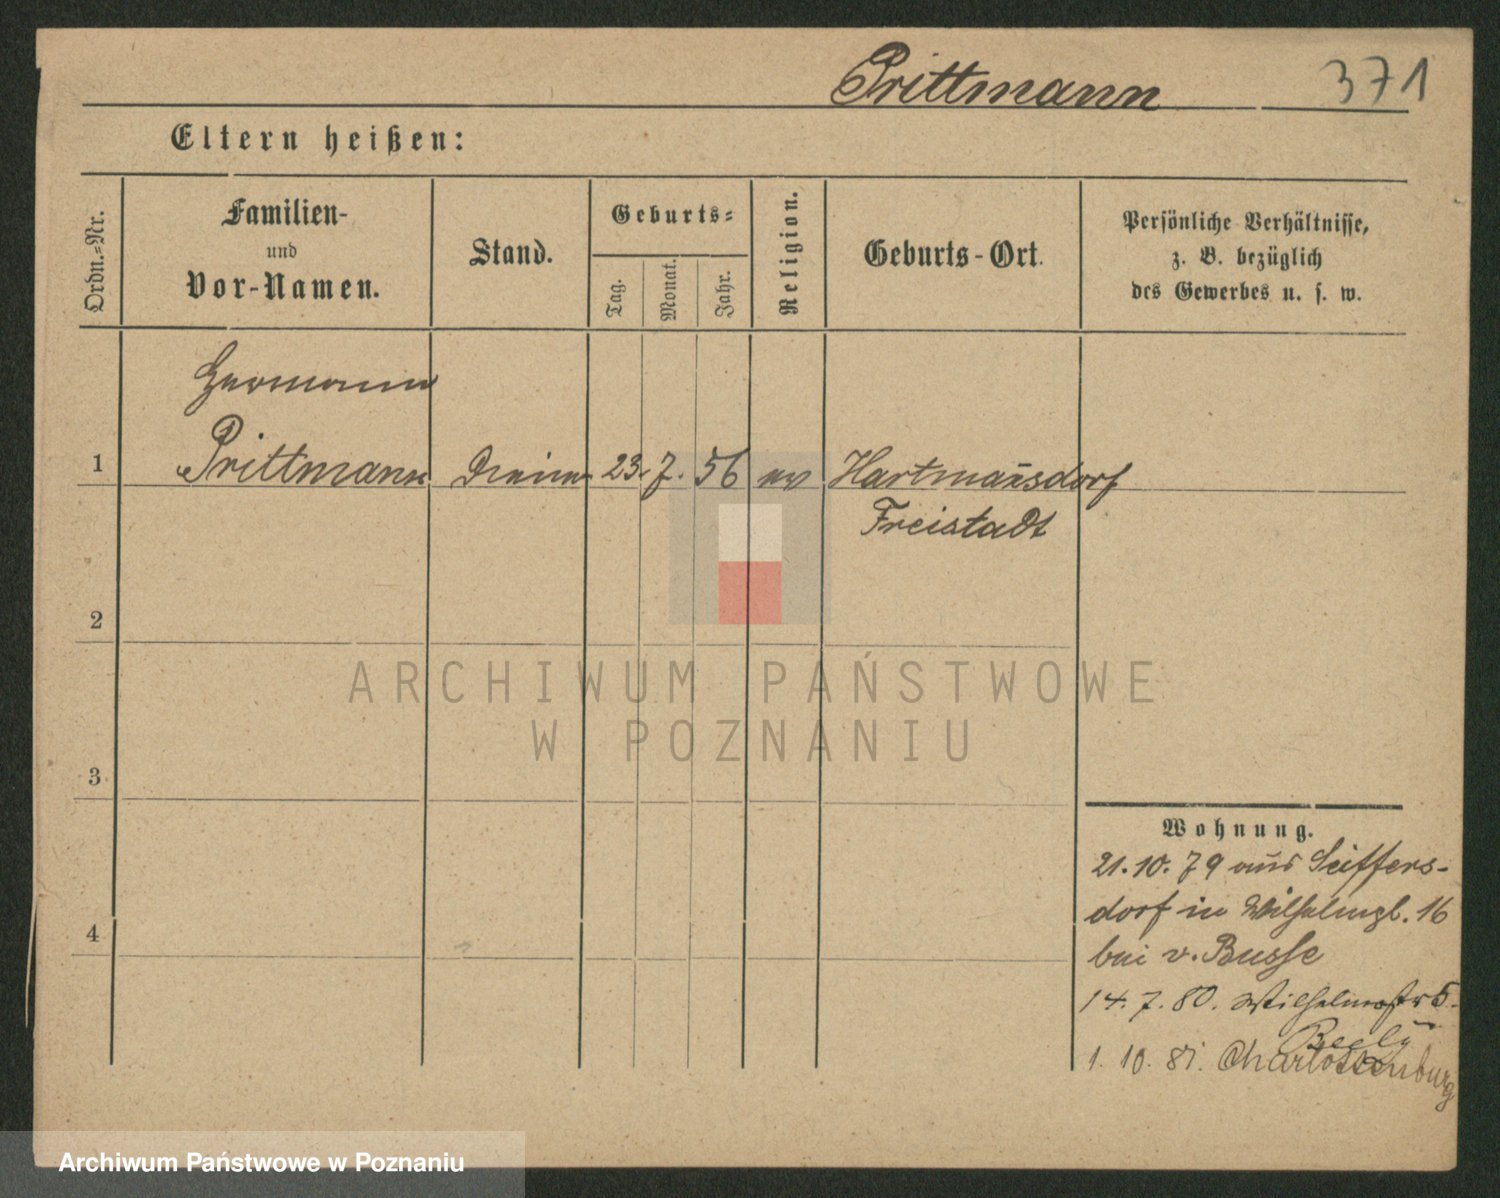 Prittmann 371
Eltern heißen:
Ordn.-Nr.
Familien-
und
Vor-Namen.
Stand.
Geburts-
Tag.
Monat.
Jahr.
Religion.
Geburts-Ort.
Persönliche Verhältnisse,
z. B. bezüglich
des Gewerbes u. s. w.
Hermann
1 Prittmann Diener 23. 7. 56 ev Hartmannsdorf
Freistadt
2
3
4
ARCHIWUM PAŃSTWOWE
W POZNANIU
Wohnung.
21.10.79 aus Seiffers-
dorf in Wilhelmspl. 16
bei v. Busse
14.7.80. Wilhelmostr 5.
Beely
1. 10. 81. Charlottenburg
Archiwum Państwowe w Poznaniu